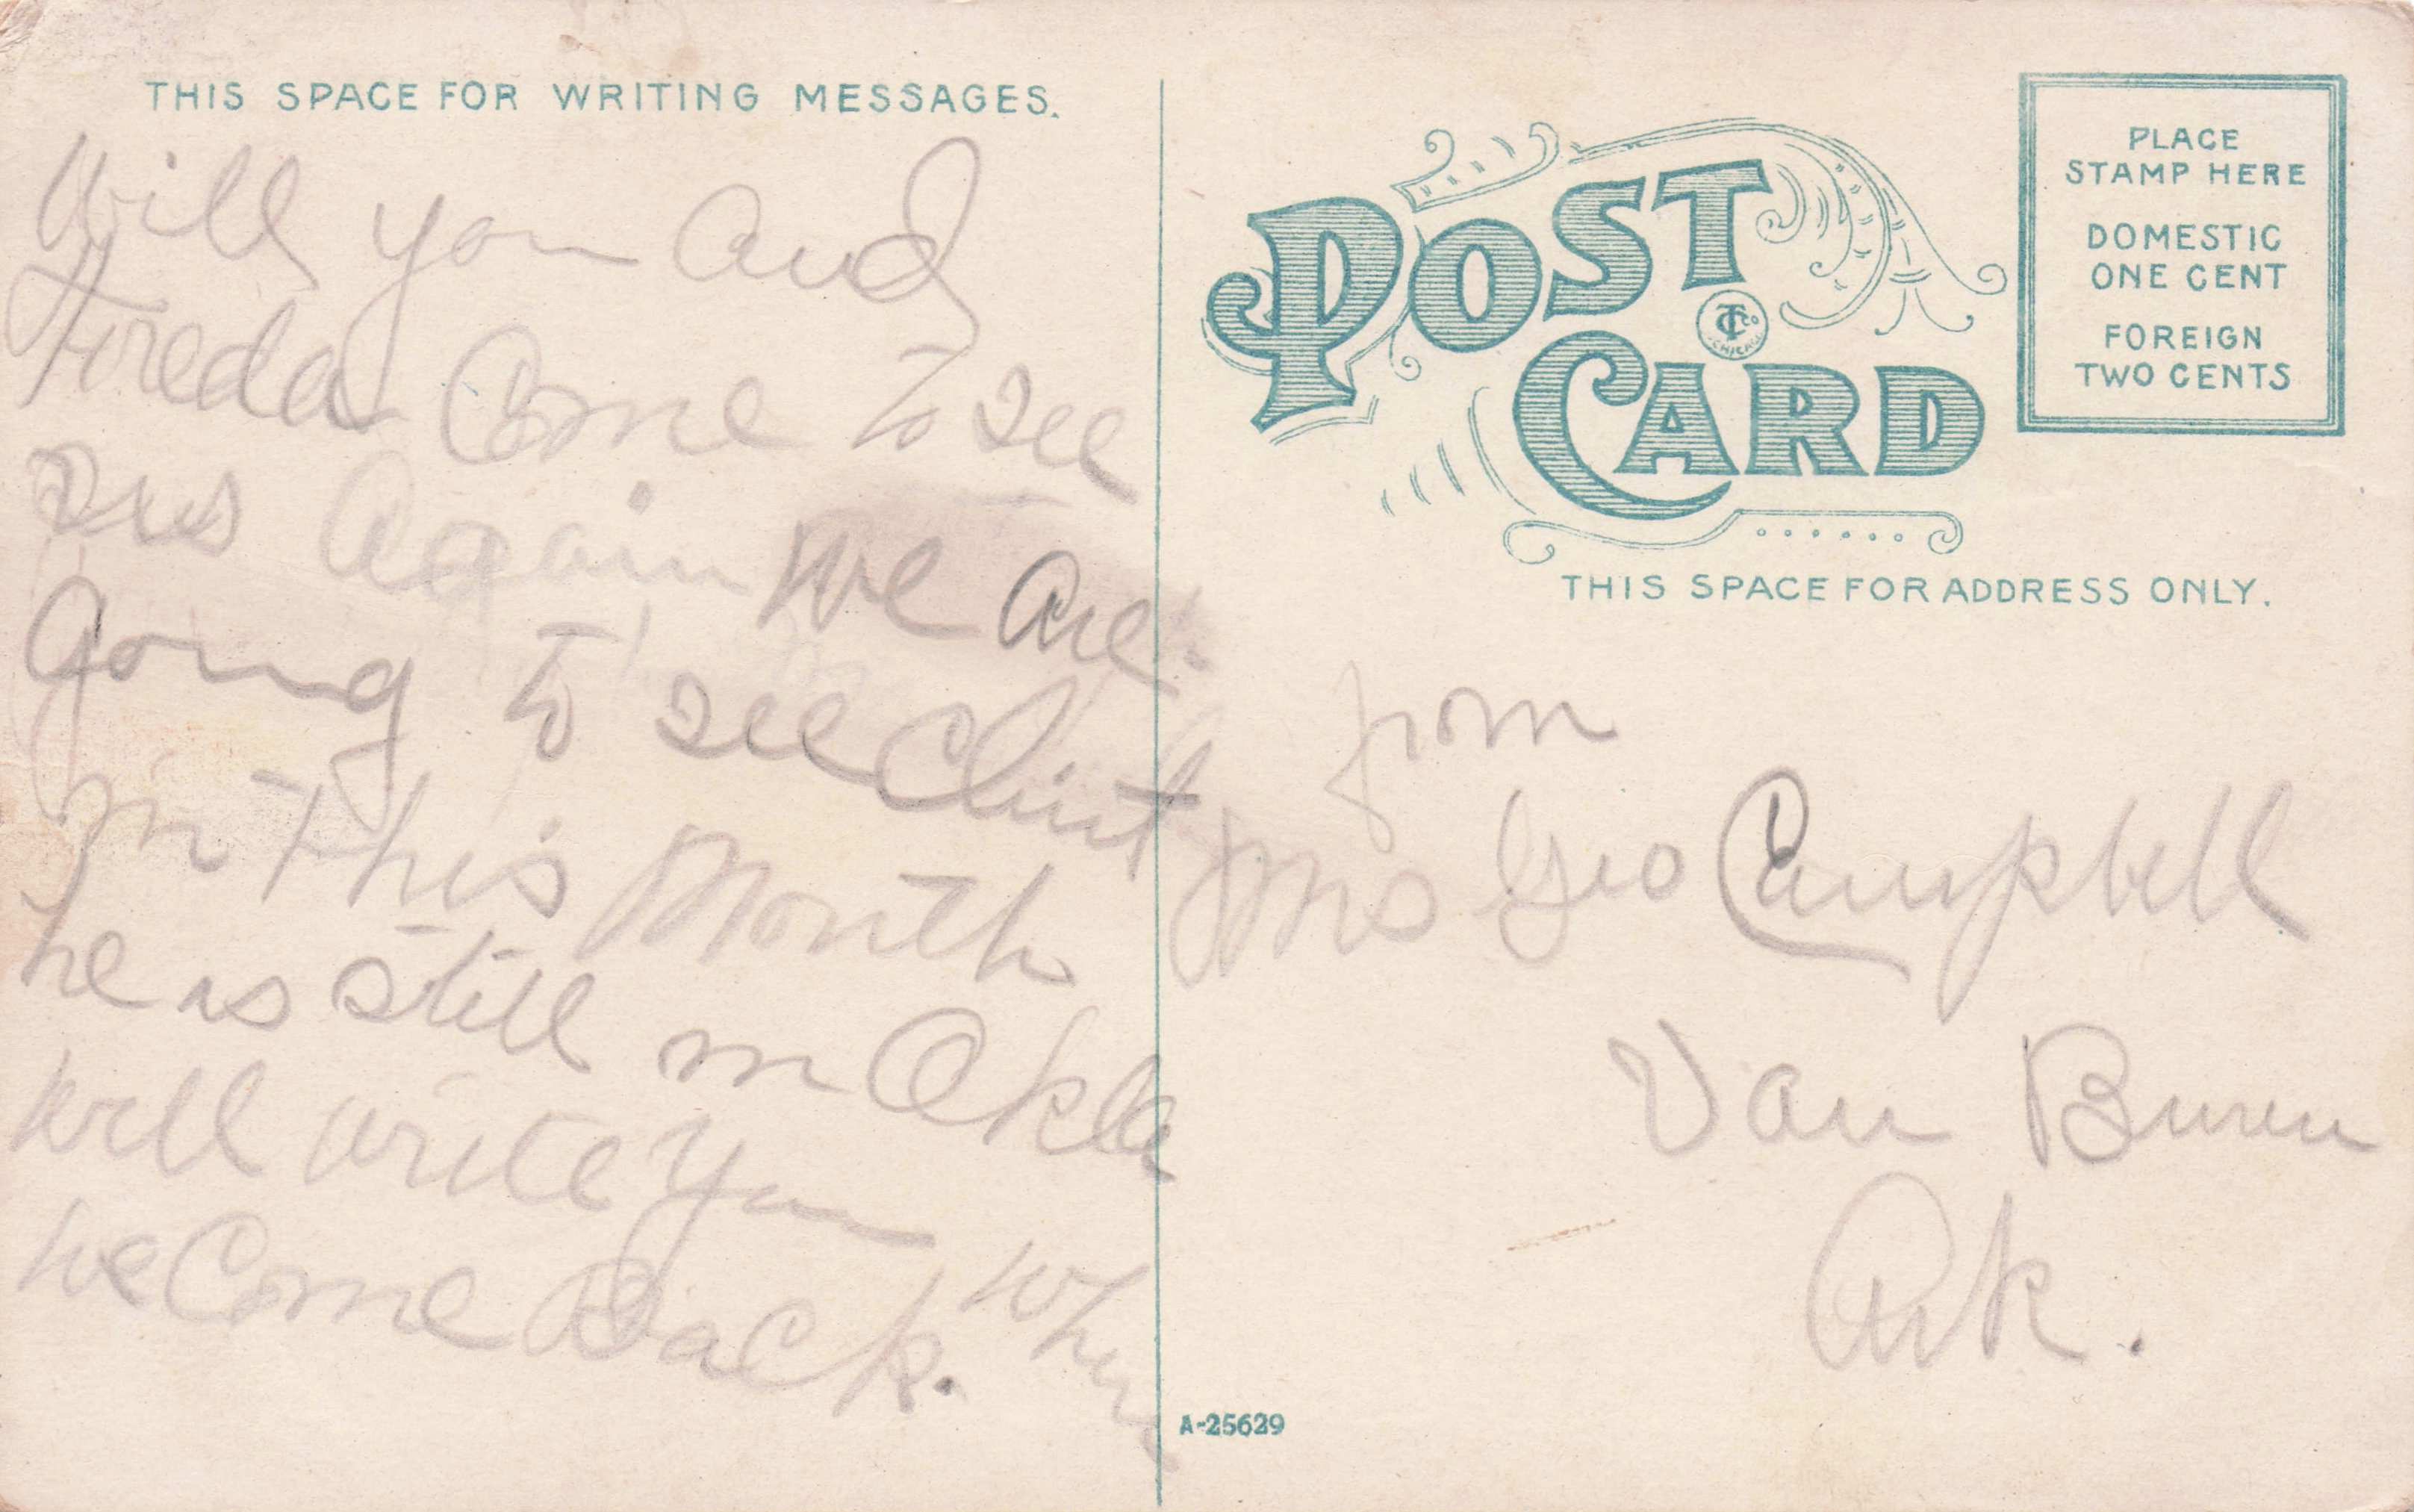 THIS SPACE FOR WRITING MESSAGES.
Will you and
Freda Come to see
us again We are
going to see Clint
in This Month
he is still in Okla
will write you when
we Come Back.
POST
CARD
PLACE
STAMP HERE
DOMESTIC
ONE CENT
FOREIGN
TWO CENTS
THIS SPACE FOR ADDRESS ONLY.
from
Mrs Geo Campbell
Van Buren
Ark.
A-25629